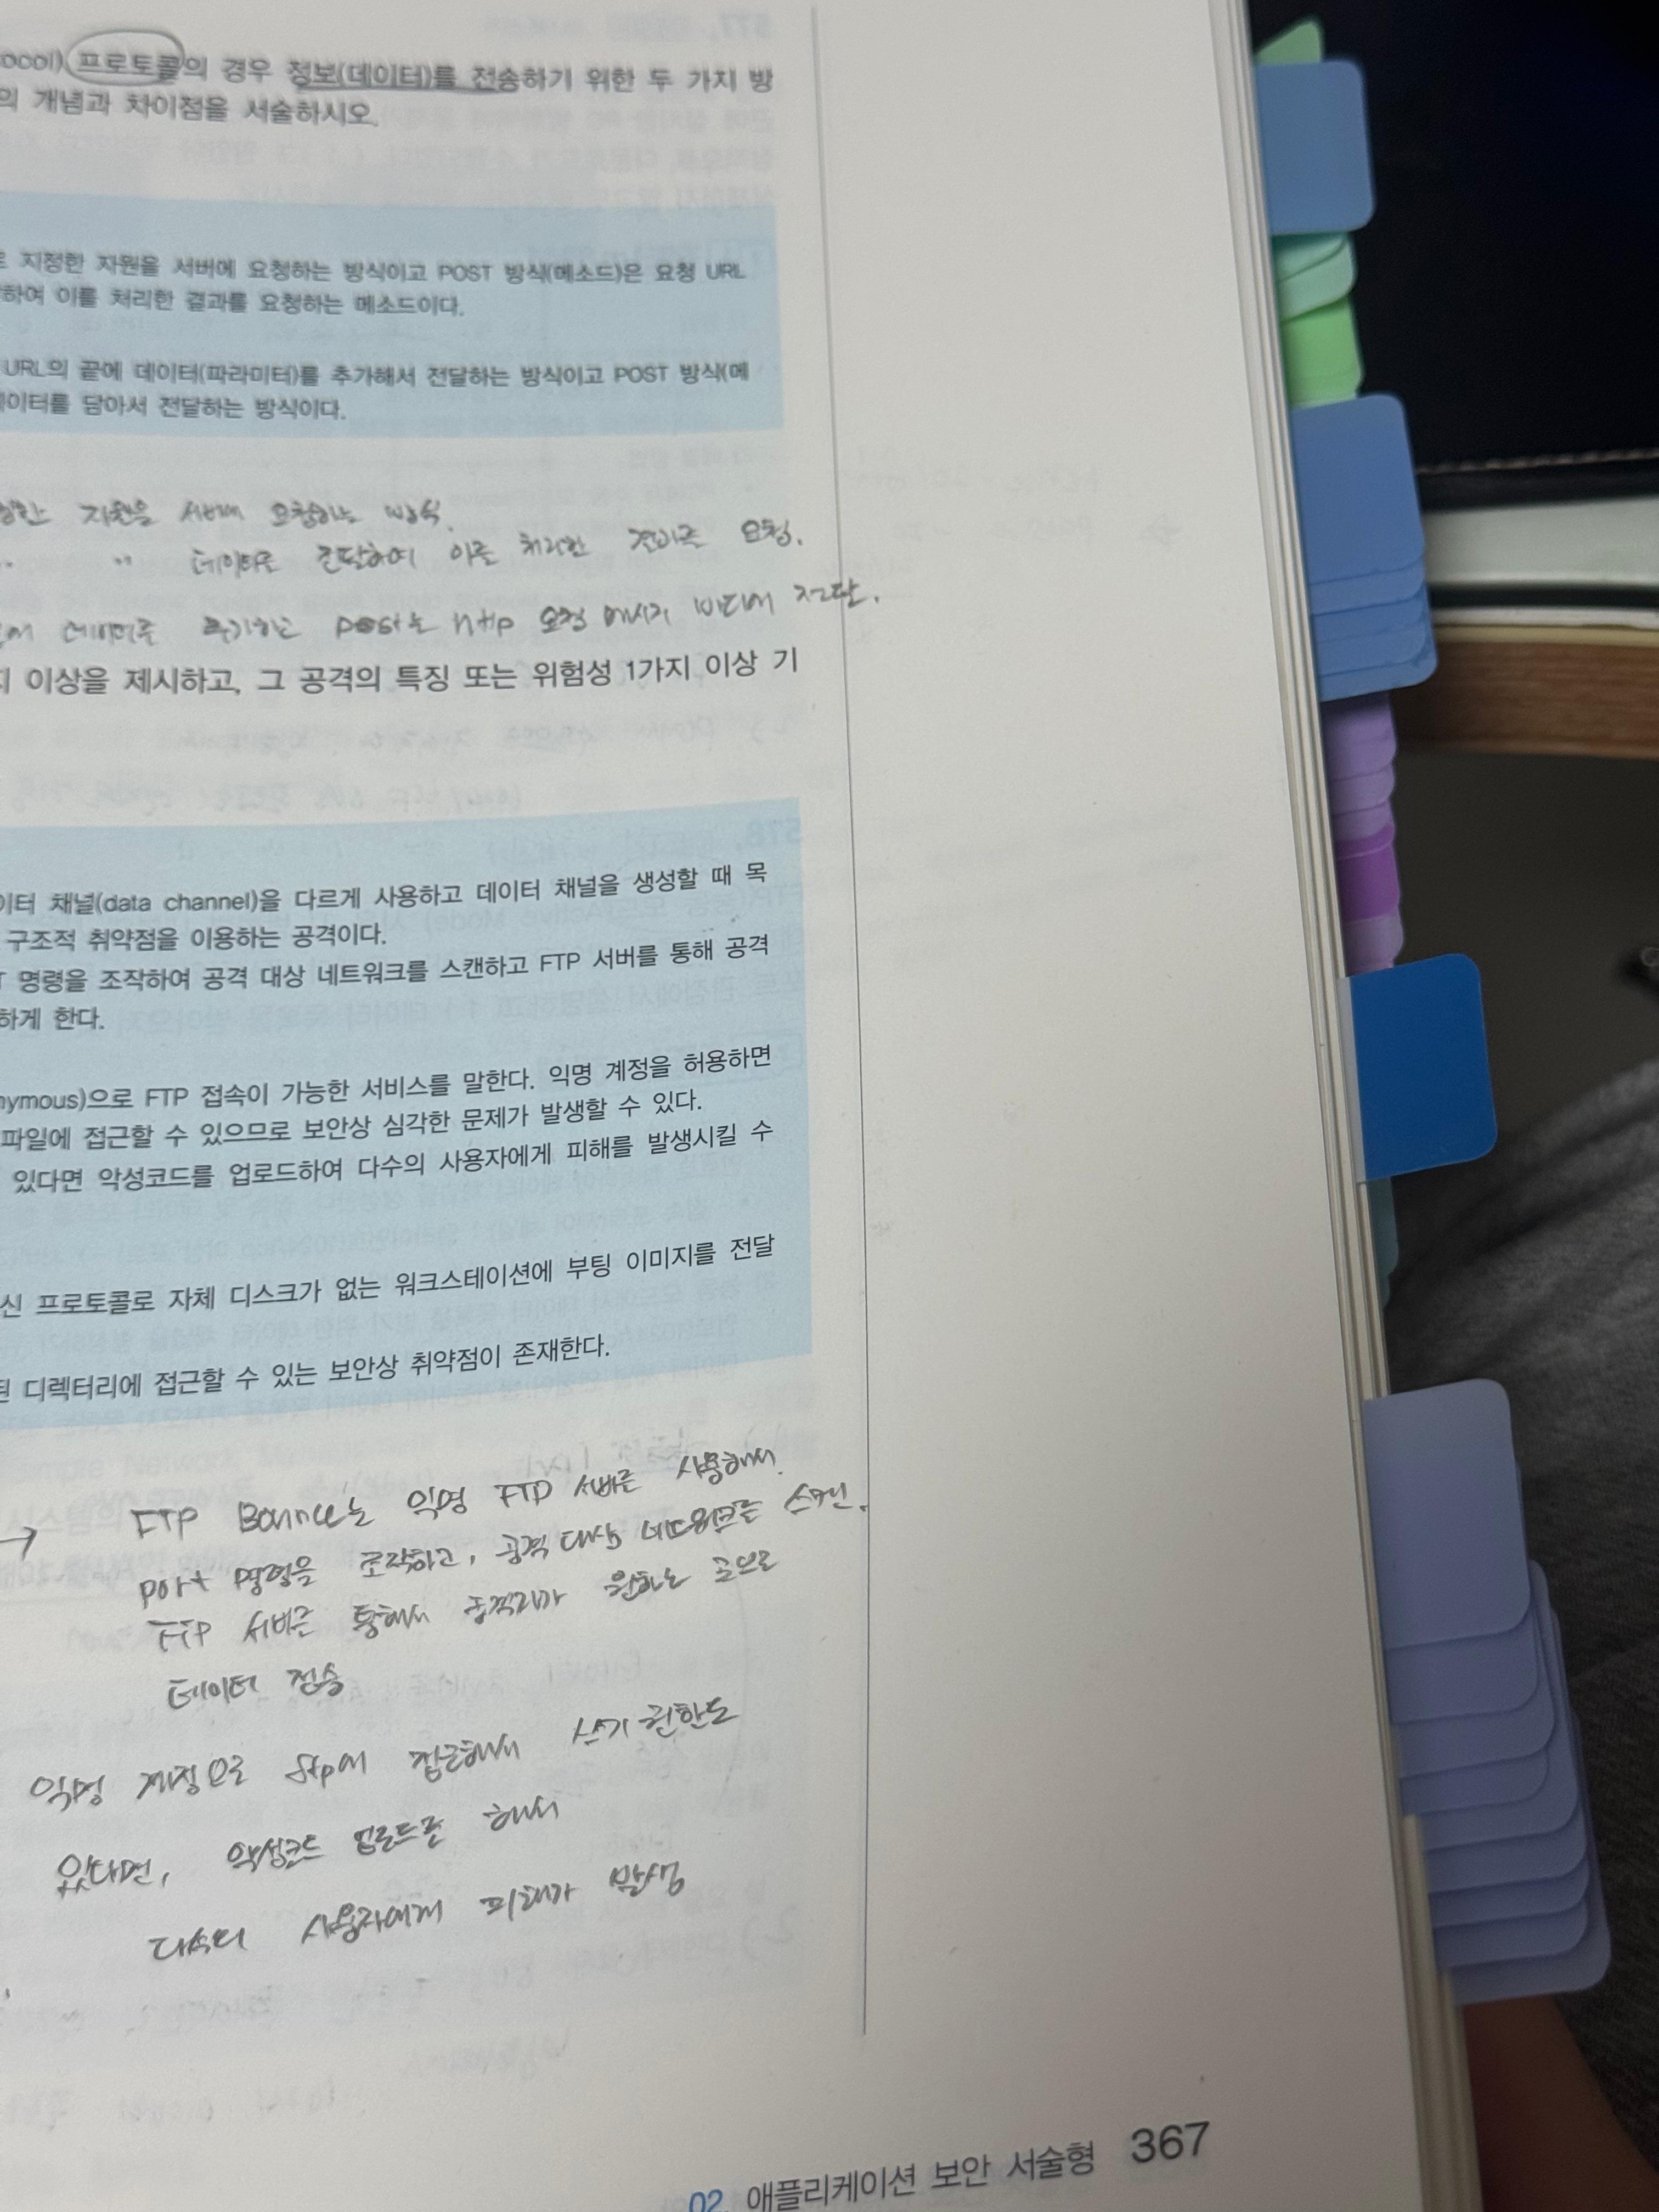 ocol) 프로토콜의 경우 정보(데이터)를 전송하기 위한 두 가지 방
의 개념과 차이점을 서술하시오.
로 지정한 자원을 서버에 요청하는 방식이고 POST 방식(메소드)은 요청 URL
하여 이를 처리한 결과를 요청하는 메소드이다.
URL의 끝에 데이터(파라미터)를 추가해서 전달하는 방식이고 POST 방식(메
데이터를 담아서 전달하는 방식이다.
정한 자원을 서버에 요청하는 방식.
" 데이터를 전달하여 이를 처리한 결과를 요청.
에 데이터를 추가하고 post는 http 요청 메시지 바디에 전달.
지 이상을 제시하고, 그 공격의 특징 또는 위험성 1가지 이상 기
이터 채널(data channel)을 다르게 사용하고 데이터 채널을 생성할 때 목
구조적 취약점을 이용하는 공격이다.
T 명령을 조작하여 공격 대상 네트워크를 스캔하고 FTP 서버를 통해 공격
하게 한다.
nymous)으로 FTP 접속이 가능한 서비스를 말한다. 익명 계정을 허용하면
파일에 접근할 수 있으므로 보안상 심각한 문제가 발생할 수 있다.
있다면 악성코드를 업로드하여 다수의 사용자에게 피해를 발생시킬 수
신 프로토콜로 자체 디스크가 없는 워크스테이션에 부팅 이미지를 전달
된 디렉터리에 접근할 수 있는 보안상 취약점이 존재한다.
→ FTP Bounce는 익명 FTP 서버를 사용해서
port 명령을 조작하고, 공격 대상 네트워크를 스캔.
FTP 서버를 통해서 공격자가 원하는 곳으로
데이터 전송
익명 계정으로 ftp에 접근해서 쓰기 권한도
있다면, 악성코드 업로드를 해서
다수의 사용자에게 피해가 발생
02. 애플리케이션 보안 서술형 367